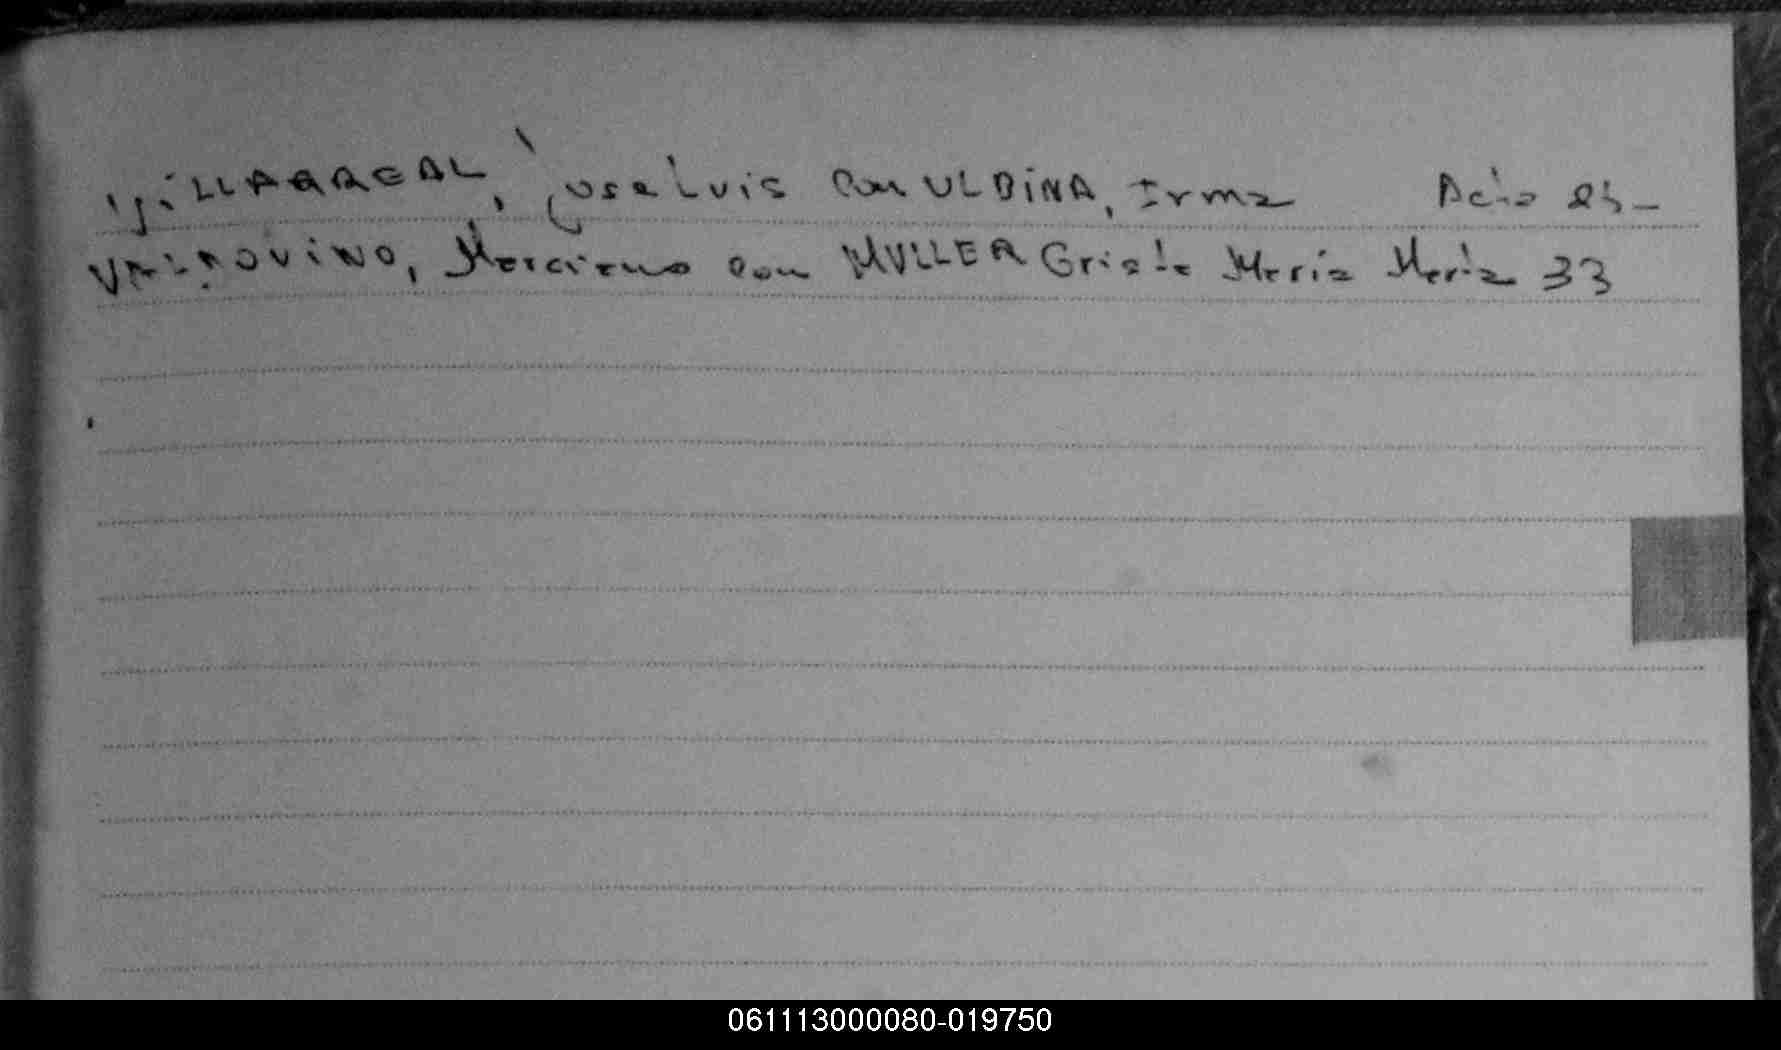 VILLARREAL, Jose Luis con ULDINA, Irma Acta 25-
VALDOVINO, Marciano con MULLER Gisela Maria Marta 33
061113000080-019750